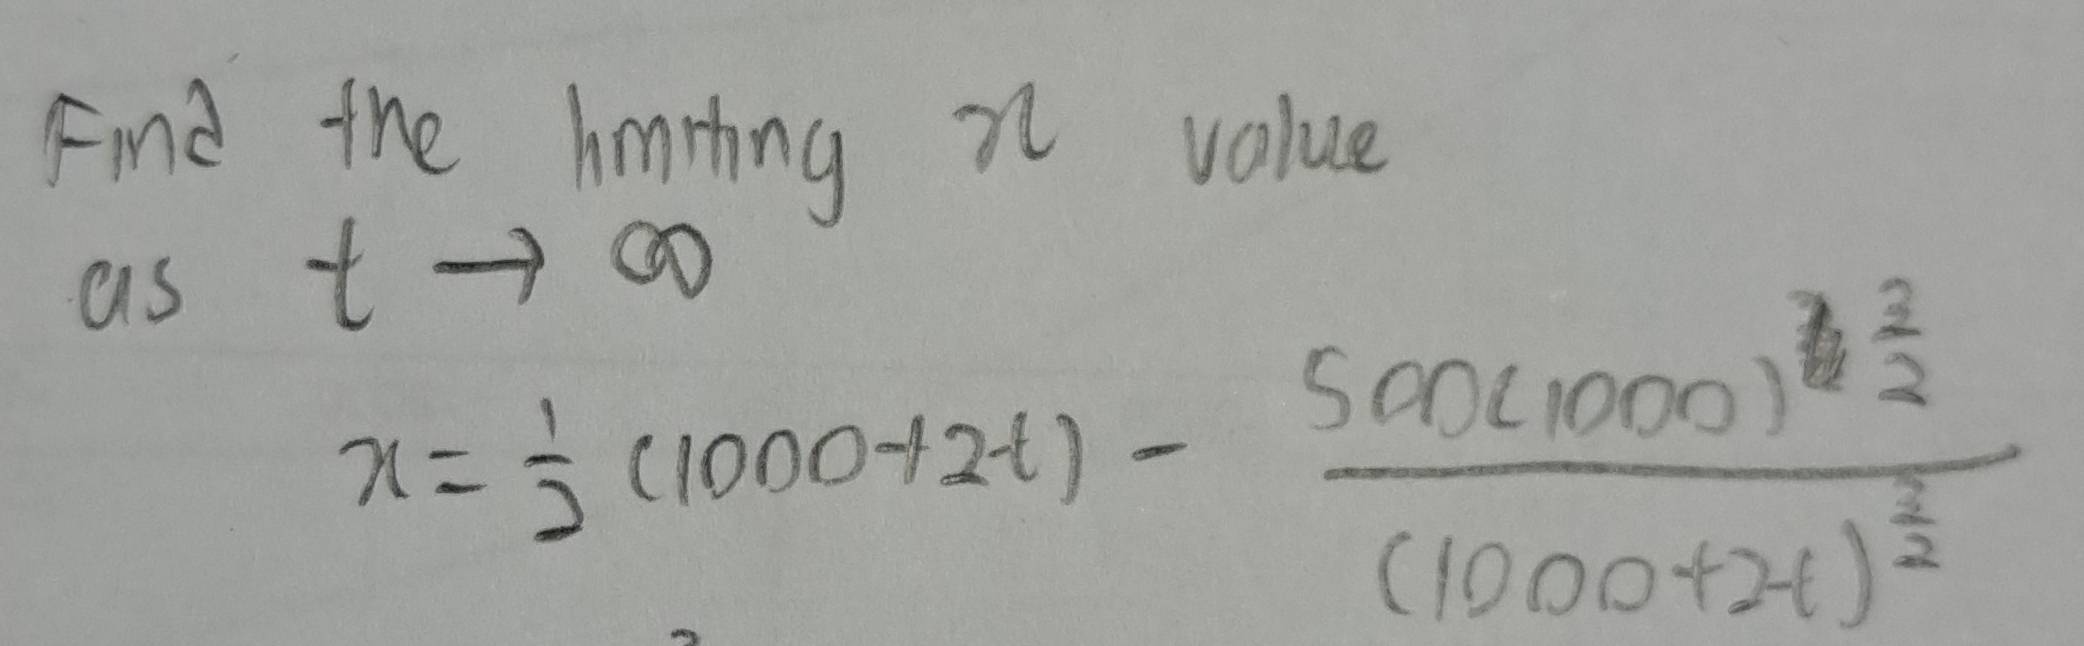 Find the limiting x value
as t → ∞
x = 1/2 (1000+2t) - 500(1000)^(3/2) / (1000+2t)^(3/2)